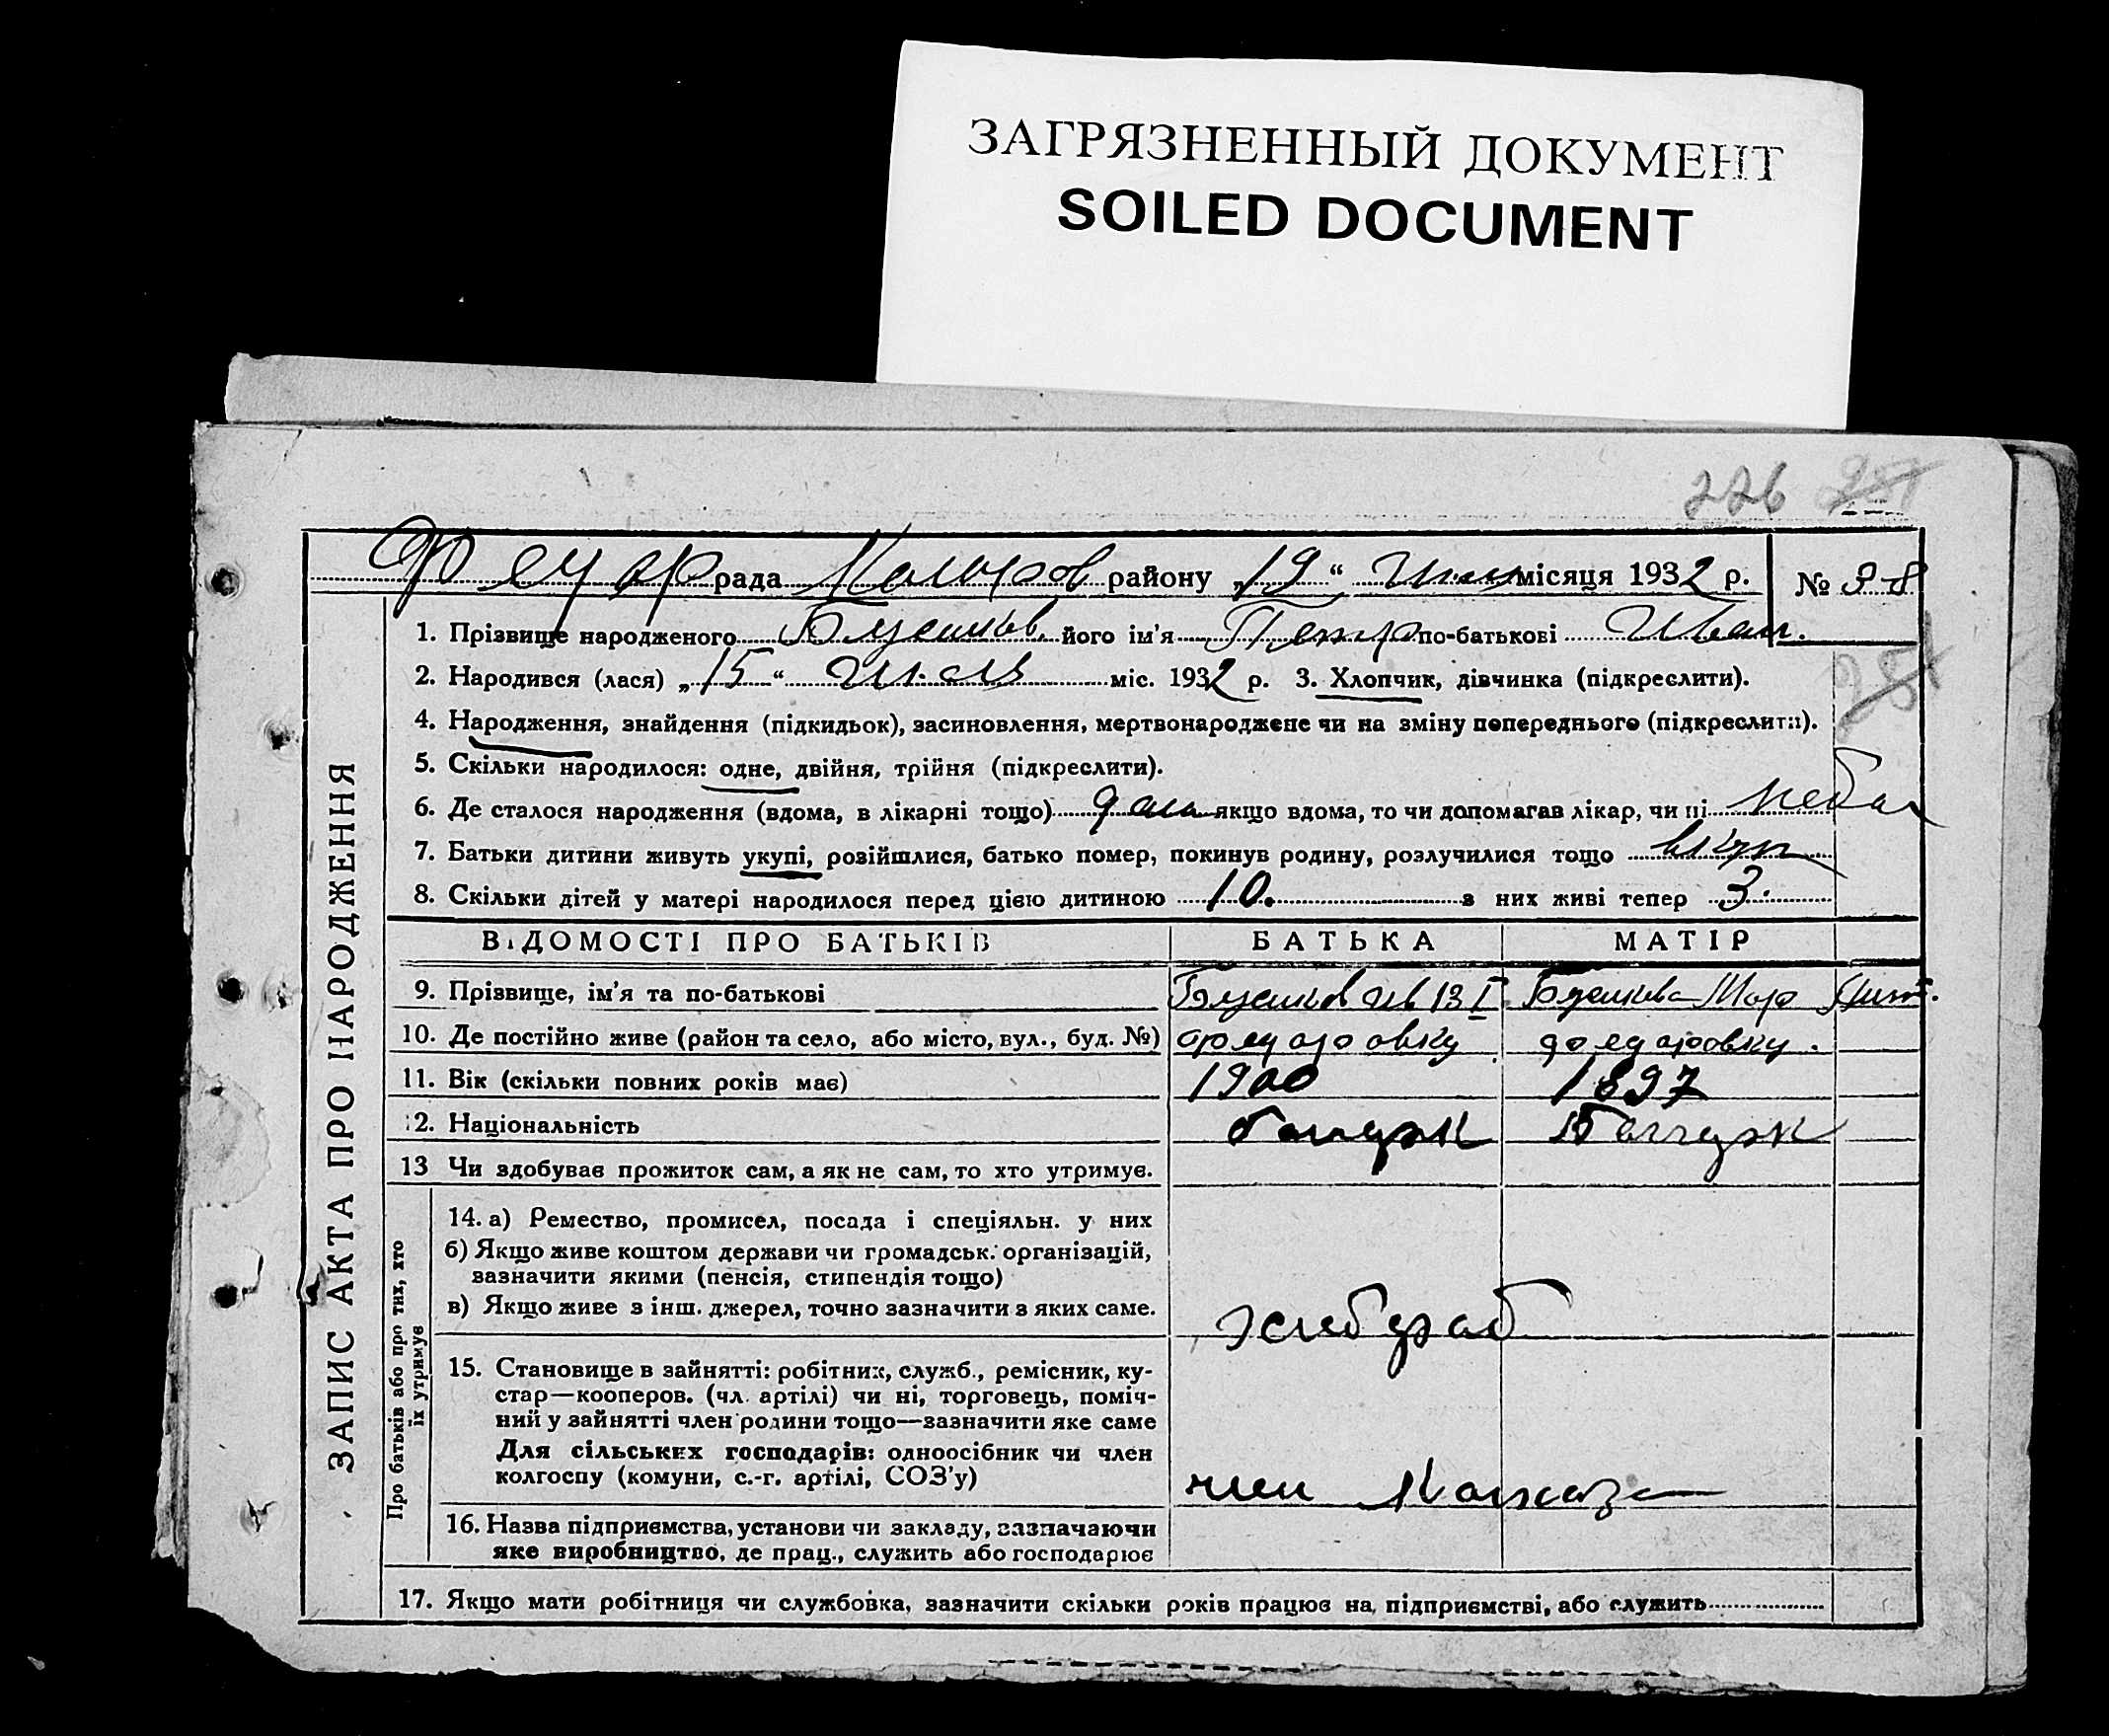 ЗАГРЯЗНЕННЫЙ ДОКУМЕНТ
SOILED DOCUMENT
226
рада район у „19“ місяця 1932 р. №
1. Прізвище народженого його ім'я Петр по-батькові Иван.
2. Народився (лася) „15“ міс. 1932 р. 3. Хлопчик, дівчинка (підкреслити).
4. Народження, знайдення (підкидьок), засиновлення, мертвонароджене чи на зміну попереднього (підкреслити).
5. Скільки народилося: одне, двійня, трійня (підкреслити).
6. Де сталося народження (вдома, в лікарні тощо) якщо вдома, то чи допомагав лікар, чи ні
7. Батьки дитини живуть укупі, розійшлися, батько помер, покинув родину, розлучилися тощо
8. Скільки дітей у матері народилося перед цією дитиною 10. з них живі тепер 3.
ВІДОМОСТІ ПРО БАТЬКІВ БАТЬКА МАТІР
9. Прізвище, ім'я та по-батькові
10. Де постійно живе (район та село, або місто, вул., буд. №)
11. Вік (скільки повних років має) 1900 1897
12. Національність
13 Чи здобуває прожиток сам, а як не сам, то хто утримує.
14. а) Ремество, промисел, посада і спеціяльн. у них
б) Якщо живе коштом держави чи громадськ. організацій,
зазначити якими (пенсія, стипендія тощо)
в) Якщо живе з інш. джерел, точно зазначити з яких саме.
15. Становище в зайнятті: робітник, служб., ремісник, ку-
стар—кооперов. (чл. артілі) чи ні, торговець, поміч-
ний у зайнятті член родини тощо—зазначити яке саме
Для сільських господарів: одноосібник чи член
колгоспу (комуни, с.-г. артілі, СОЗ'у)
член
16. Назва підприємства, установи чи закладу, зазначаючи
яке виробництво, де прац., служить або господарює
17. Якщо мати робітниця чи службовка, зазначити скільки років працює на підприємстві, або служить
ЗАПИС АКТА ПРО НАРОДЖЕННЯ
Про батьків або про тих, хто
їх утримує